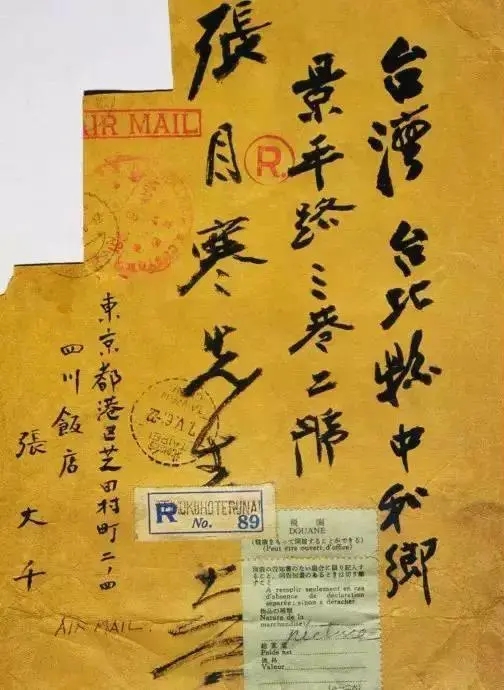 台灣台北縣中和鄉
景平路三巷二號
張目寒先生
AIR MAIL
R.
東京都港区芝田村町二ノ四
四川飯店
張大千
AIR MAIL.
TAIPEI
R OKUHOTERUNAI
No. 89
税関
DOUANE
(Peut être ouvert d'office)
A remplir seulement en cas
d'absence de déclaration
séparée; sinon à détacher
物品の種類
Nature de la
marchandise
picture
Poids net
価格
Valeur